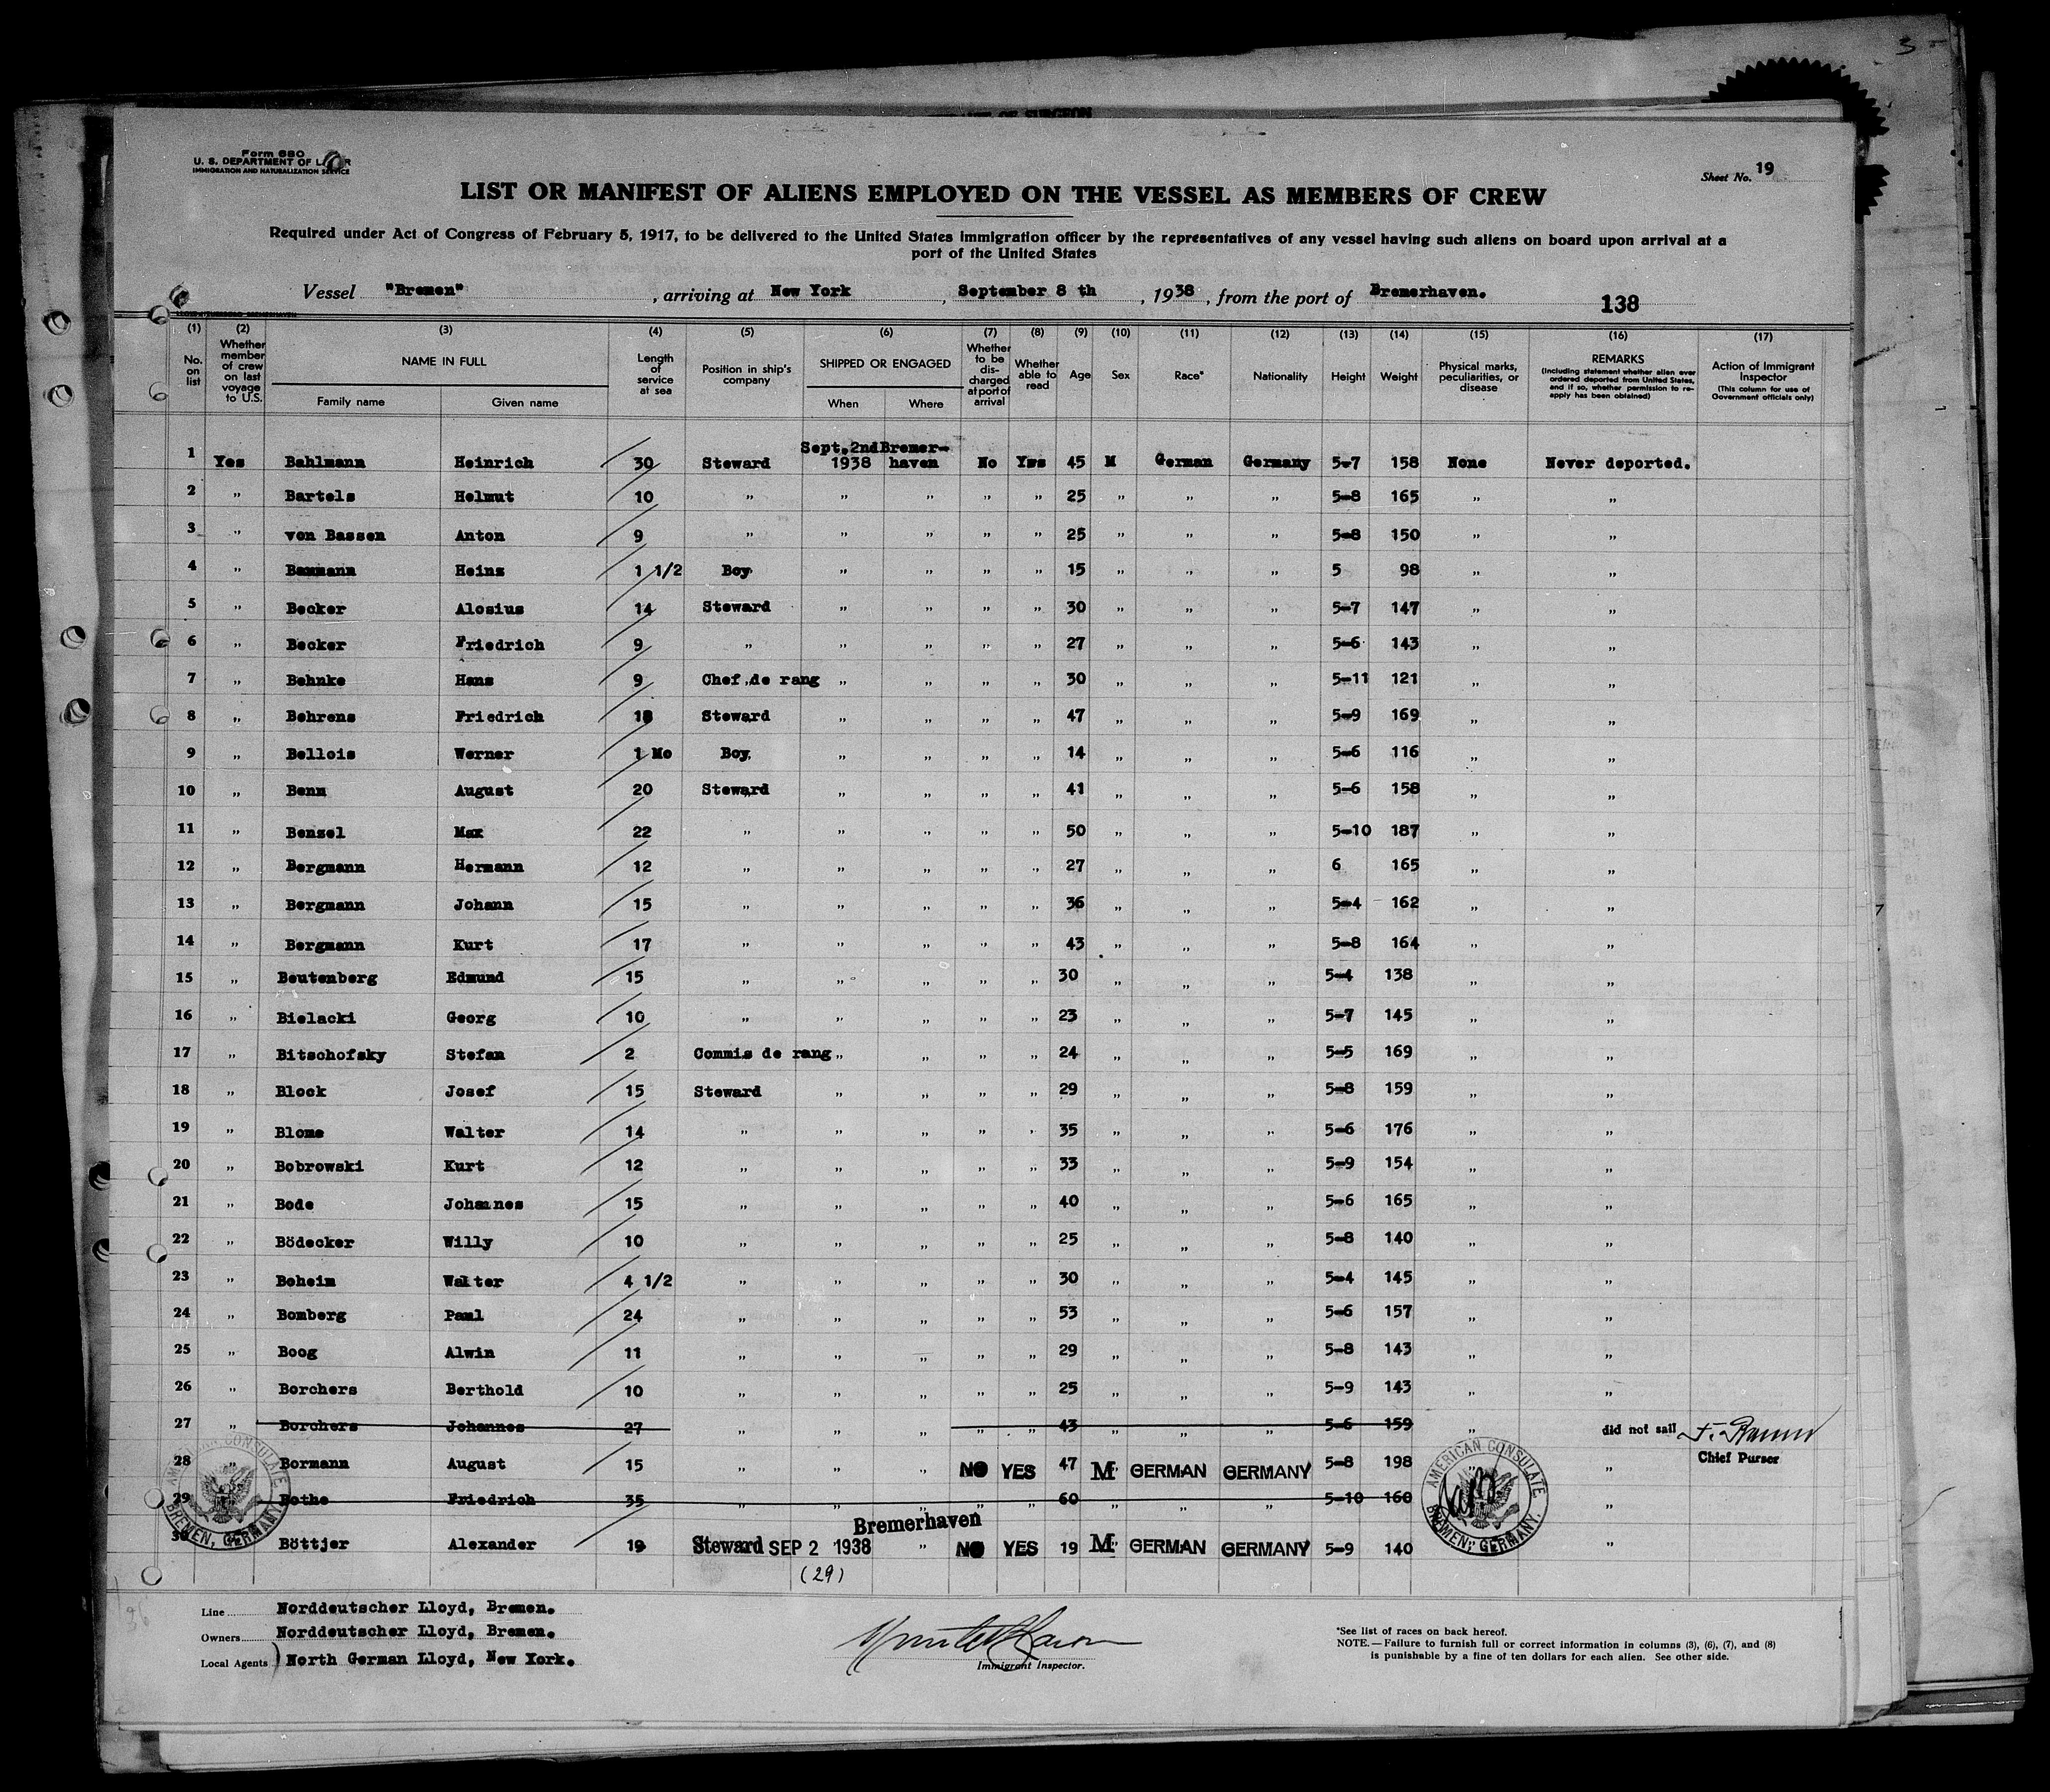 3
OF SURGEON
Form 680
U. S. DEPARTMENT OF
IMMIGRATION AND NATURALIZATION SERVICE
Sheet No. 19
LIST OR MANIFEST OF ALIENS EMPLOYED ON THE VESSEL AS MEMBERS OF CREW
Required under Act of Congress of February 5, 1917, to be delivered to the United States immigration officer by the representatives of any vessel having such aliens on board upon arrival at a
port of the United States
Vessel "Bremen", arriving at New York, September 8 th, 1938, from the port of Bremerhaven. 138
(1) (2) (3) (4) (5) (6) (7) (8) (9) (10) (11) (12) (13) (14) (15) (16) (17)
No. on list
Whether member of crew on last voyage to U.S.
NAME IN FULL
Family name
Given name
Length of service at sea
Position in ship's company
SHIPPED OR ENGAGED
When
Where
Whether to be discharged at port of arrival
Whether able to read
Age
Sex
Race*
Nationality
Height
Weight
Physical marks, peculiarities, or disease
REMARKS
(Including statement whether alien ever ordered deported from United States, and if so, whether permission to reapply has been obtained)
Action of Immigrant Inspector
(This column for use of Government officials only)
1 Yes Bahlmann Heinrich 30 Steward Sept. 2nd 1938 Bremerhaven No Yes 45 M German Germany 5-7 158 None Never deported.
2 " Bartels Helmut 10 " " " " " 25 " " " 5-8 165 " "
3 " von Bassen Anton 9 " " " " " 25 " " " 5-8 150 " "
4 " Baumann Heinz 1 1/2 Boy " " " " 15 " " " 5 98 " "
5 " Becker Alosius 14 Steward " " " " 30 " " " 5-7 147 " "
6 " Becker Friedrich 9 " " " " " 27 " " " 5-6 143 " "
7 " Behnke Hans 9 Chef de rang " " " " 30 " " " 5-11 121 " "
8 " Behrens Friedrich 18 Steward " " " " 47 " " " 5-9 169 " "
9 " Bellois Werner 1 Mo Boy " " " " 14 " " " 5-6 116 " "
10 " Benn August 20 Steward " " " " 41 " " " 5-6 158 " "
11 " Benzel Max 22 " " " " " 50 " " " 5-10 187 " "
12 " Bergmann Hermann 12 " " " " " 27 " " " 6 165 " "
13 " Bergmann Johann 15 " " " " " 36 " " " 5-4 162 " "
14 " Bergmann Kurt 17 " " " " " 43 " " " 5-8 164 " "
15 " Beutenberg Edmund 15 " " " " " 30 " " " 5-4 138 " "
16 " Bielacki Georg 10 " " " " " 23 " " " 5-7 145 " "
17 " Bitschofsky Stefan 2 Commis de rang " " " " 24 " " " 5-5 169 " "
18 " Block Josef 15 Steward " " " " 29 " " " 5-8 159 " "
19 " Blome Walter 14 " " " " " 35 " " " 5-6 176 " "
20 " Bobrowski Kurt 12 " " " " " 33 " " " 5-9 154 " "
21 " Bode Johannes 15 " " " " " 40 " " " 5-6 165 " "
22 " Bödecker Willy 10 " " " " " 25 " " " 5-8 140 " "
23 " Boheim Walter 4 1/2 " " " " " 30 " " " 5-4 145 " "
24 " Bomberg Paul 24 " " " " " 53 " " " 5-6 157 " "
25 " Boog Alwin 11 " " " " " 29 " " " 5-8 143 " "
26 " Borchers Berthold 10 " " " " " 25 " " " 5-9 143 " "
27 " Borchers Johannes 27 " " " " " 43 " " " 5-6 159 " did not sail
Chief Purser
28 " Bormann August 15 " " " NO YES 47 M GERMAN GERMANY 5-8 198 " "
29 Bothe Friedrich 35 " " " " " 60 " " " 5-10 160 "
30 Böttjer Alexander 19 Steward SEP 2 1938 Bremerhaven " NO YES 19 M GERMAN GERMANY 5-9 140 "
(29)
AMERICAN CONSULATE
BREMEN, GERMANY.
AMERICAN CONSULATE
BREMEN, GERMANY.
Line Norddeutscher Lloyd, Bremen.
Owners Norddeutscher Lloyd, Bremen.
Local Agents North German Lloyd, New York.
Immigrant Inspector.
*See list of races on back hereof.
NOTE.—Failure to furnish full or correct information in columns (3), (6), (7), and (8)
is punishable by a fine of ten dollars for each alien. See other side.